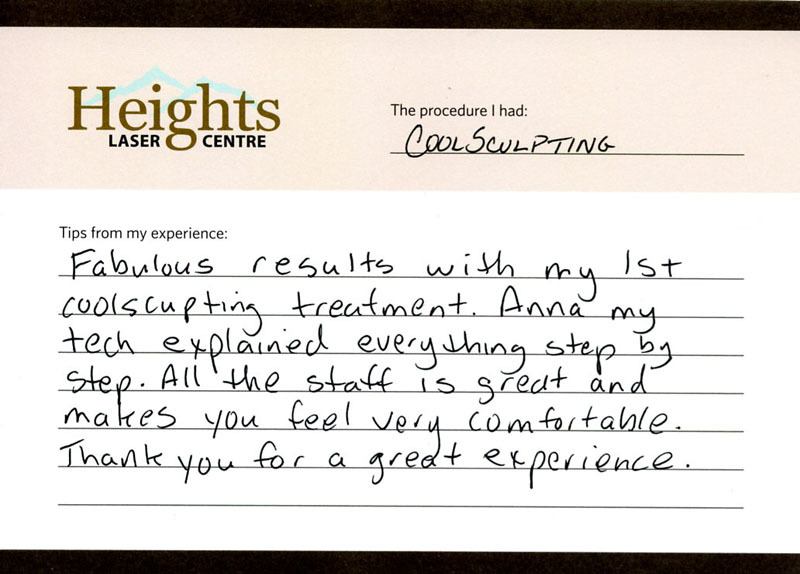 Heights
LASER CENTRE
The procedure I had:
COOLSCULPTING
Tips from my experience:
Fabulous results with my 1st
coolscupting treatment. Anna my
tech explained everything step by
step. All the staff is great and
makes you feel very comfortable.
Thank you for a great experience.